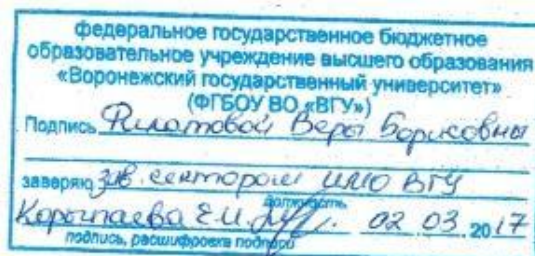 федеральное государственное бюджетное
образовательное учреждение высшего образования
«Воронежский государственный университет»
(ФГБОУ ВО «ВГУ»)
Подпись Филатовой Веры Борисовны
заверяю зав. сектором ВГУ
должность
02 03. 2017
подпись, расшифровка подписи